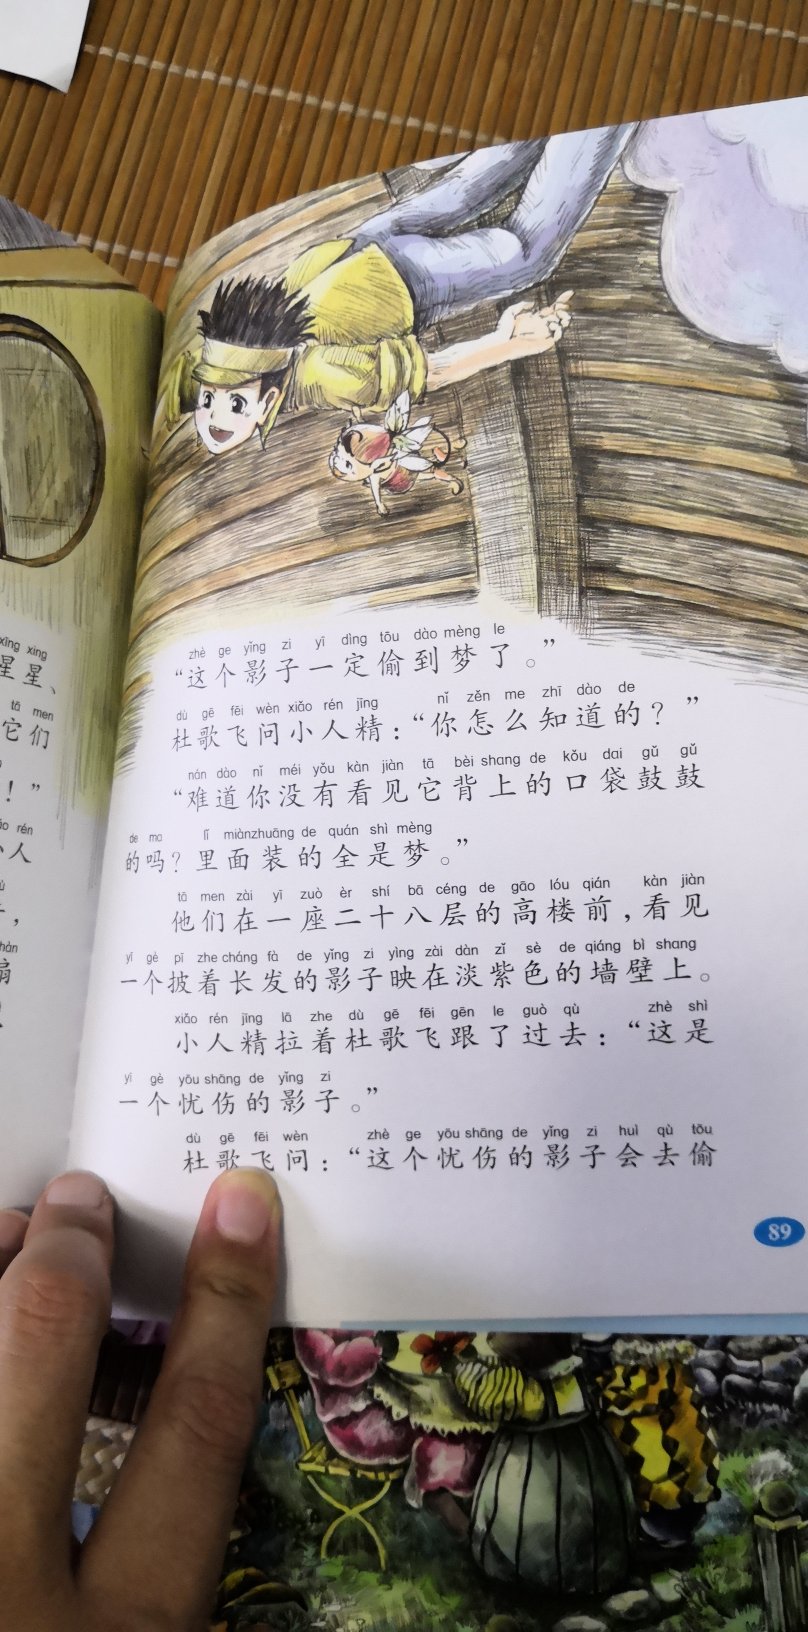 xīng xing
星星、
tā men
它们
！”
ǎo rén
小人
，
zhè ge yǐng zi yī dìng tōu dào mèng le
“这个影子一定偷到梦了。”
dù gē fēi wèn xiǎo rén jīng nǐ zěn me zhī dào de
杜歌飞问小人精：“你怎么知道的？”
nán dào nǐ méi yǒu kàn jiàn tā bèi shang de kǒu dai gǔ gǔ
“难道你没有看见它背上的口袋鼓鼓
de ma lǐ miàn zhuāng de quán shì mèng
的吗？里面装的全是梦。”
tā men zài yī zuò èr shí bā céng de gāo lóu qián kàn jiàn
他们在一座二十八层的高楼前，看见
yī gè pī zhe cháng fà de yǐng zi yìng zài dàn zǐ sè de qiáng bì shang
一个披着长发的影子映在淡紫色的墙壁上。
xiǎo rén jīng lā zhe dù gē fēi gēn le guò qù zhè shì
小人精拉着杜歌飞跟了过去：“这是
yī gè yōu shāng de yǐng zi
一个忧伤的影子。”
dù gē fēi wèn zhè ge yōu shāng de yǐng zi huì qù tōu
杜歌飞问：“这个忧伤的影子会去偷
89